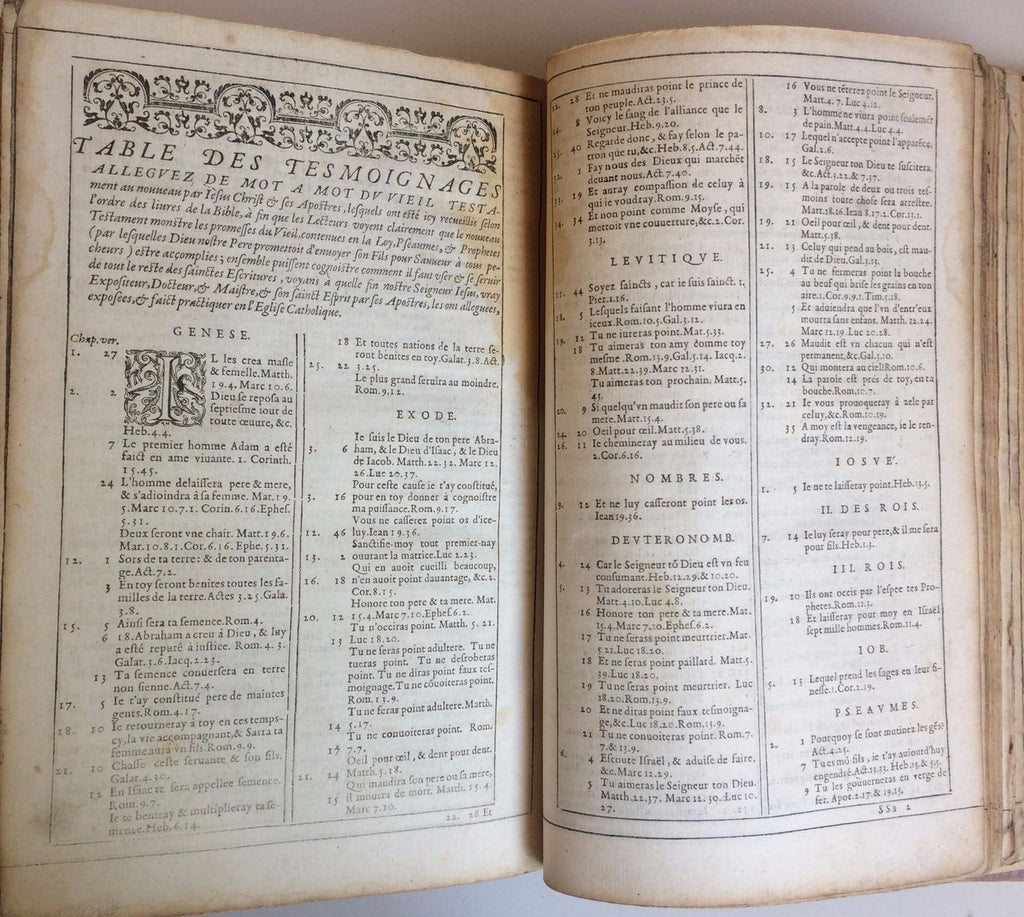 TABLE DES TESMOIGNAGES
ALLEGVEZ DE MOT A MOT DV VIEIL TESTA-
ment au nouueau par Iesus Christ & ses Apostres, lesquels ont esté icy recueillis selon
l'ordre des liures de la Bible, à fin que les Lecteurs voyent clairement que le nouueau
Testament monstre les promesses du Vieil, contenues en la Loy, Pseaumes, & Prophetes
(par lesquelles Dieu nostre Pere promettoit d'enuoyer son Fils pour Sauueur à tous pe-
cheurs) estre accomplies; ensemble puissent cognoistre comment il faut vser & se seruir
de tout le reste des sainctes Escritures, voyans à quelle fin nostre Seigneur Iesus, vray
Expositeur, Docteur, & Maistre, & son sainct Esprit par ses Apostres, les ont alleguees,
exposées, & faict practiquer en l'Eglise Catholique.
GENESE.
Chap. ver.
1. 27 IL les crea masle
& femelle. Matth.
19.4. Marc 10.6.
2. 2 Dieu se reposa au
septiesme iour de
toute œuure, &c.
Heb.4.4.
7 Le premier homme Adam a esté
faict en ame viuante. 1. Corinth.
15.45.
24 L'homme delaissera pere & mere,
& s'adioindra à sa femme. Mat.19.
5. Marc 10.7. 1. Corin. 6.16. Ephes.
5.31.
Deux seront vne chair. Matt. 19.6.
Mar. 10.8. 1. Cor. 6.16. Ephe. 5.31.
12. 1 Sors de ta terre: & de ton parenta-
ge. Act. 7.2.
3 En toy seront benites toutes les fa-
milles de la terre. Actes 3.25. Gala.
3.8.
15. 5 Ainsi sera ta semence. Rom. 4.
6 18. Abraham a creu à Dieu, & luy
a esté reputé à iustice. Rom. 4. 3.
Galat. 3.6. Iacq. 2.23.
13 Ta semence conuersera en terre
non sienne. Act. 7.4.
17. 5 Ie t'ay constitué pere de maintes
gents. Rom. 4. 17.
18. 10 Ie retourneray à toy en ces temps-
cy, la vie accompagnant, & Sarra ta
femme aura vn fils. Rom. 9.9.
21. 10 Chasse ceste seruante & son fils.
Galat. 4. 30.
12 En Isaac te sera appellee semence.
Rom. 9.7.
Ie te beniray & multiplieray ta se-
mence. Heb. 6.14.
18 Et toutes nations de la terre se-
ront benites en toy. Galat. 3.8. Act.
25. 22 3.25.
Le plus grand seruira au moindre.
Rom. 9.12.
EXODE.
Ie suis le Dieu de ton pere Abra-
3. 6 ham, & le Dieu d'Isaac, & le Dieu
de Iacob. Matth. 22.32. Marc 12.
26. Luc 20.37.
Pour ceste cause ie t'ay constitué,
3. 16 pour en toy donner à cognoistre
ma puissance. Rom. 9.17.
Vous ne casserez point os d'ice-
12. 46 luy. Iean 19.36.
Sanctifie-moy tout premier-nay
13. 2 ouurant la matrice. Luc 2.23.
Qui en auoit cueilli beaucoup,
16. 18 n'en auoit point dauantage, &c. 2.
Cor. 8.15.
Honore ton pere & ta mere. Mat.
20. 12 15.4. Marc 7.10. Ephes. 6.2.
Tu n'occiras point. Matth. 5. 21.
13 Luc 18.20.
Tu ne seras point adultere. Tu ne
tueras point. Tu ne desroberas
point. Tu ne diras point faux tes-
moignage. Tu ne couoiteras point.
Rom. 13.9.
Tu ne feras point adultere. Matth.
14 5.17.
Tu ne conuoiteras point. Rom.
17 7.7.
Oeil pour œil, & dent pour dent.
21. 24 Matth. 5.38.
Qui maudira son pere ou sa mere,
15 il mourra de mort. Matth. 15.4.
Marc 7.10.
22. 28 Et
22. 28 Et ne maudiras point le prince de
ton peuple. Act. 23.5.
8 Voicy le sang de l'alliance que le
Seigneur. Heb. 9.20.
25. 40 Regarde donc, & fay selon le pa-
tron que tu, &c. Heb. 8.5. Act. 7.44.
1 Fay nous des Dieux qui marchēt
deuant nous. Act. 7.40.
19 Et auray compassion de celuy à
qui ie voudray. Rom. 9.15.
34 Et non point comme Moyse, qui
mettoit vne couuerture, &c. 2. Cor.
3.13.
LEVITIQVE.
44 Soyez saincts, car ie suis sainct. 1.
Pier. 1.16.
18. 5 Lesquels faisant l'homme viura en
iceux. Rom. 10.5. Gal. 3.12.
19. 12 Tu ne iureras point. Mat. 5.33.
18 Tu aimeras ton amy comme toy
mesme. Rom. 13.9. Gal. 5.14. Iacq. 2.
8. Matt. 22.39. Marc 12.31.
Tu aimeras ton prochain. Matt. 5.
43.
20. 9 Si quelqu'vn maudit son pere ou sa
mere. Matt. 15.4.
24. 20 Oeil pour œil. Matt. 5.38.
26. 11 Ie chemineray au milieu de vous.
2. Cor. 6.16.
NOMBRES.
9. 12 Et ne luy casseront point les os.
Iean 19.36.
DEVTERONOMB.
4. 24 Car le Seigneur tō Dieu est vn feu
consumant. Heb. 12.29. & 10.20.
5. 13 Tu adoreras le Seigneur ton Dieu.
Matt. 4.10. Luc 4.8.
16 Honore ton pere & ta mere. Mat.
15.4. Marc 7.10. Ephes. 6.2.
17 Tu ne seras point meurtrier. Mat.
5.21. Luc 18.20.
18 Et ne seras point paillard. Matt. 5.
39. Luc 18.20.
19 Tu ne seras point meurtrier. Luc
18.20. Rom. 13.9.
20 Et ne diras point faux tesmoigna-
ge, &c. Luc 18.20. Rom. 13.9.
21 Tu ne conuoiteras point. Rom. 7.
7. & 13.9.
6. 4 Escoute Israël, & aduise de faire,
&c. Marc 12.29.
5 Tu aimeras le Seigneur ton Dieu.
Matth. 22.37. Marc 12.30. Luc 10.
27.
16 Vous ne tēterez point le Seigneur.
Matt. 4. 7. Luc 4.12.
8. 3 L'homme ne viura point seulemēt
de pain. Matt. 4.4. Luc 4.4.
10. 17 Lequel n'accepte point l'apparēce.
Gal. 2.6.
18. 15 Le Seigneur ton Dieu te suscitera,
&c. Act. 3.22. & 7.37.
19. 15 A la parole de deux ou trois tes-
moins toute chose sera arrestee.
Matt. 18.16. Iean 8.17. 2. Cor. 13.1.
19. 21 Oeil pour œil, & dent pour dent.
Matt. 5.38.
21. 23 Celuy qui pend au bois, est mau-
dit de Dieu. Gal. 3.13.
25. 4 Tu ne fermeras point la bouche
au beuf qui brise les grains en ton
aire. 1. Cor. 9.9. 1. Tim. 5.18.
5 Et aduiendra que l'vn d'entr'eux
mourra sans enfans. Matth. 22.24.
Marc 12.19. Luc 20.28.
27. 26 Maudit est vn chacun qui n'est
permanent, &c. Gal. 3.10.
30. 12 Qui montera au ciel? Rom. 10.6.
14 La parole est prés de toy, en ta
bouche. Rom. 10.7.
32. 21 Ie vous prouoqueray à zele par
celuy, &c. Rom. 10.19.
35 A moy est la vengeance, ie le ren-
dray. Rom. 12.19.
IOSVE'.
1. 5 Ie ne te laisseray point. Heb. 13.5.
II. DES ROIS.
7. 14 Ie luy seray pour pere, & il me sera
pour fils. Heb. 1.3.
III. ROIS.
19. 10 Ils ont occis par l'espee tes Pro-
phetes. Rom. 11.3.
18 Et laisseray pour moy en Israël
sept mille hommes. Rom. 11.4.
IOB.
5. 13 Lequel prend les sages en leur fi-
nesse. 1. Cor. 2.19.
PSEAVMES.
2. 1 Pourquoy se sont mutinez les gēs?
Act. 4.25.
7 Tu es mō fils, ie t'ay auiourd'huy
engendré. Act. 13.33. Heb. 1.5. & 5.5.
9 Tu les gouuerneras en verge de
fer. Apoc. 2.17. & 19.15.
SSs 2